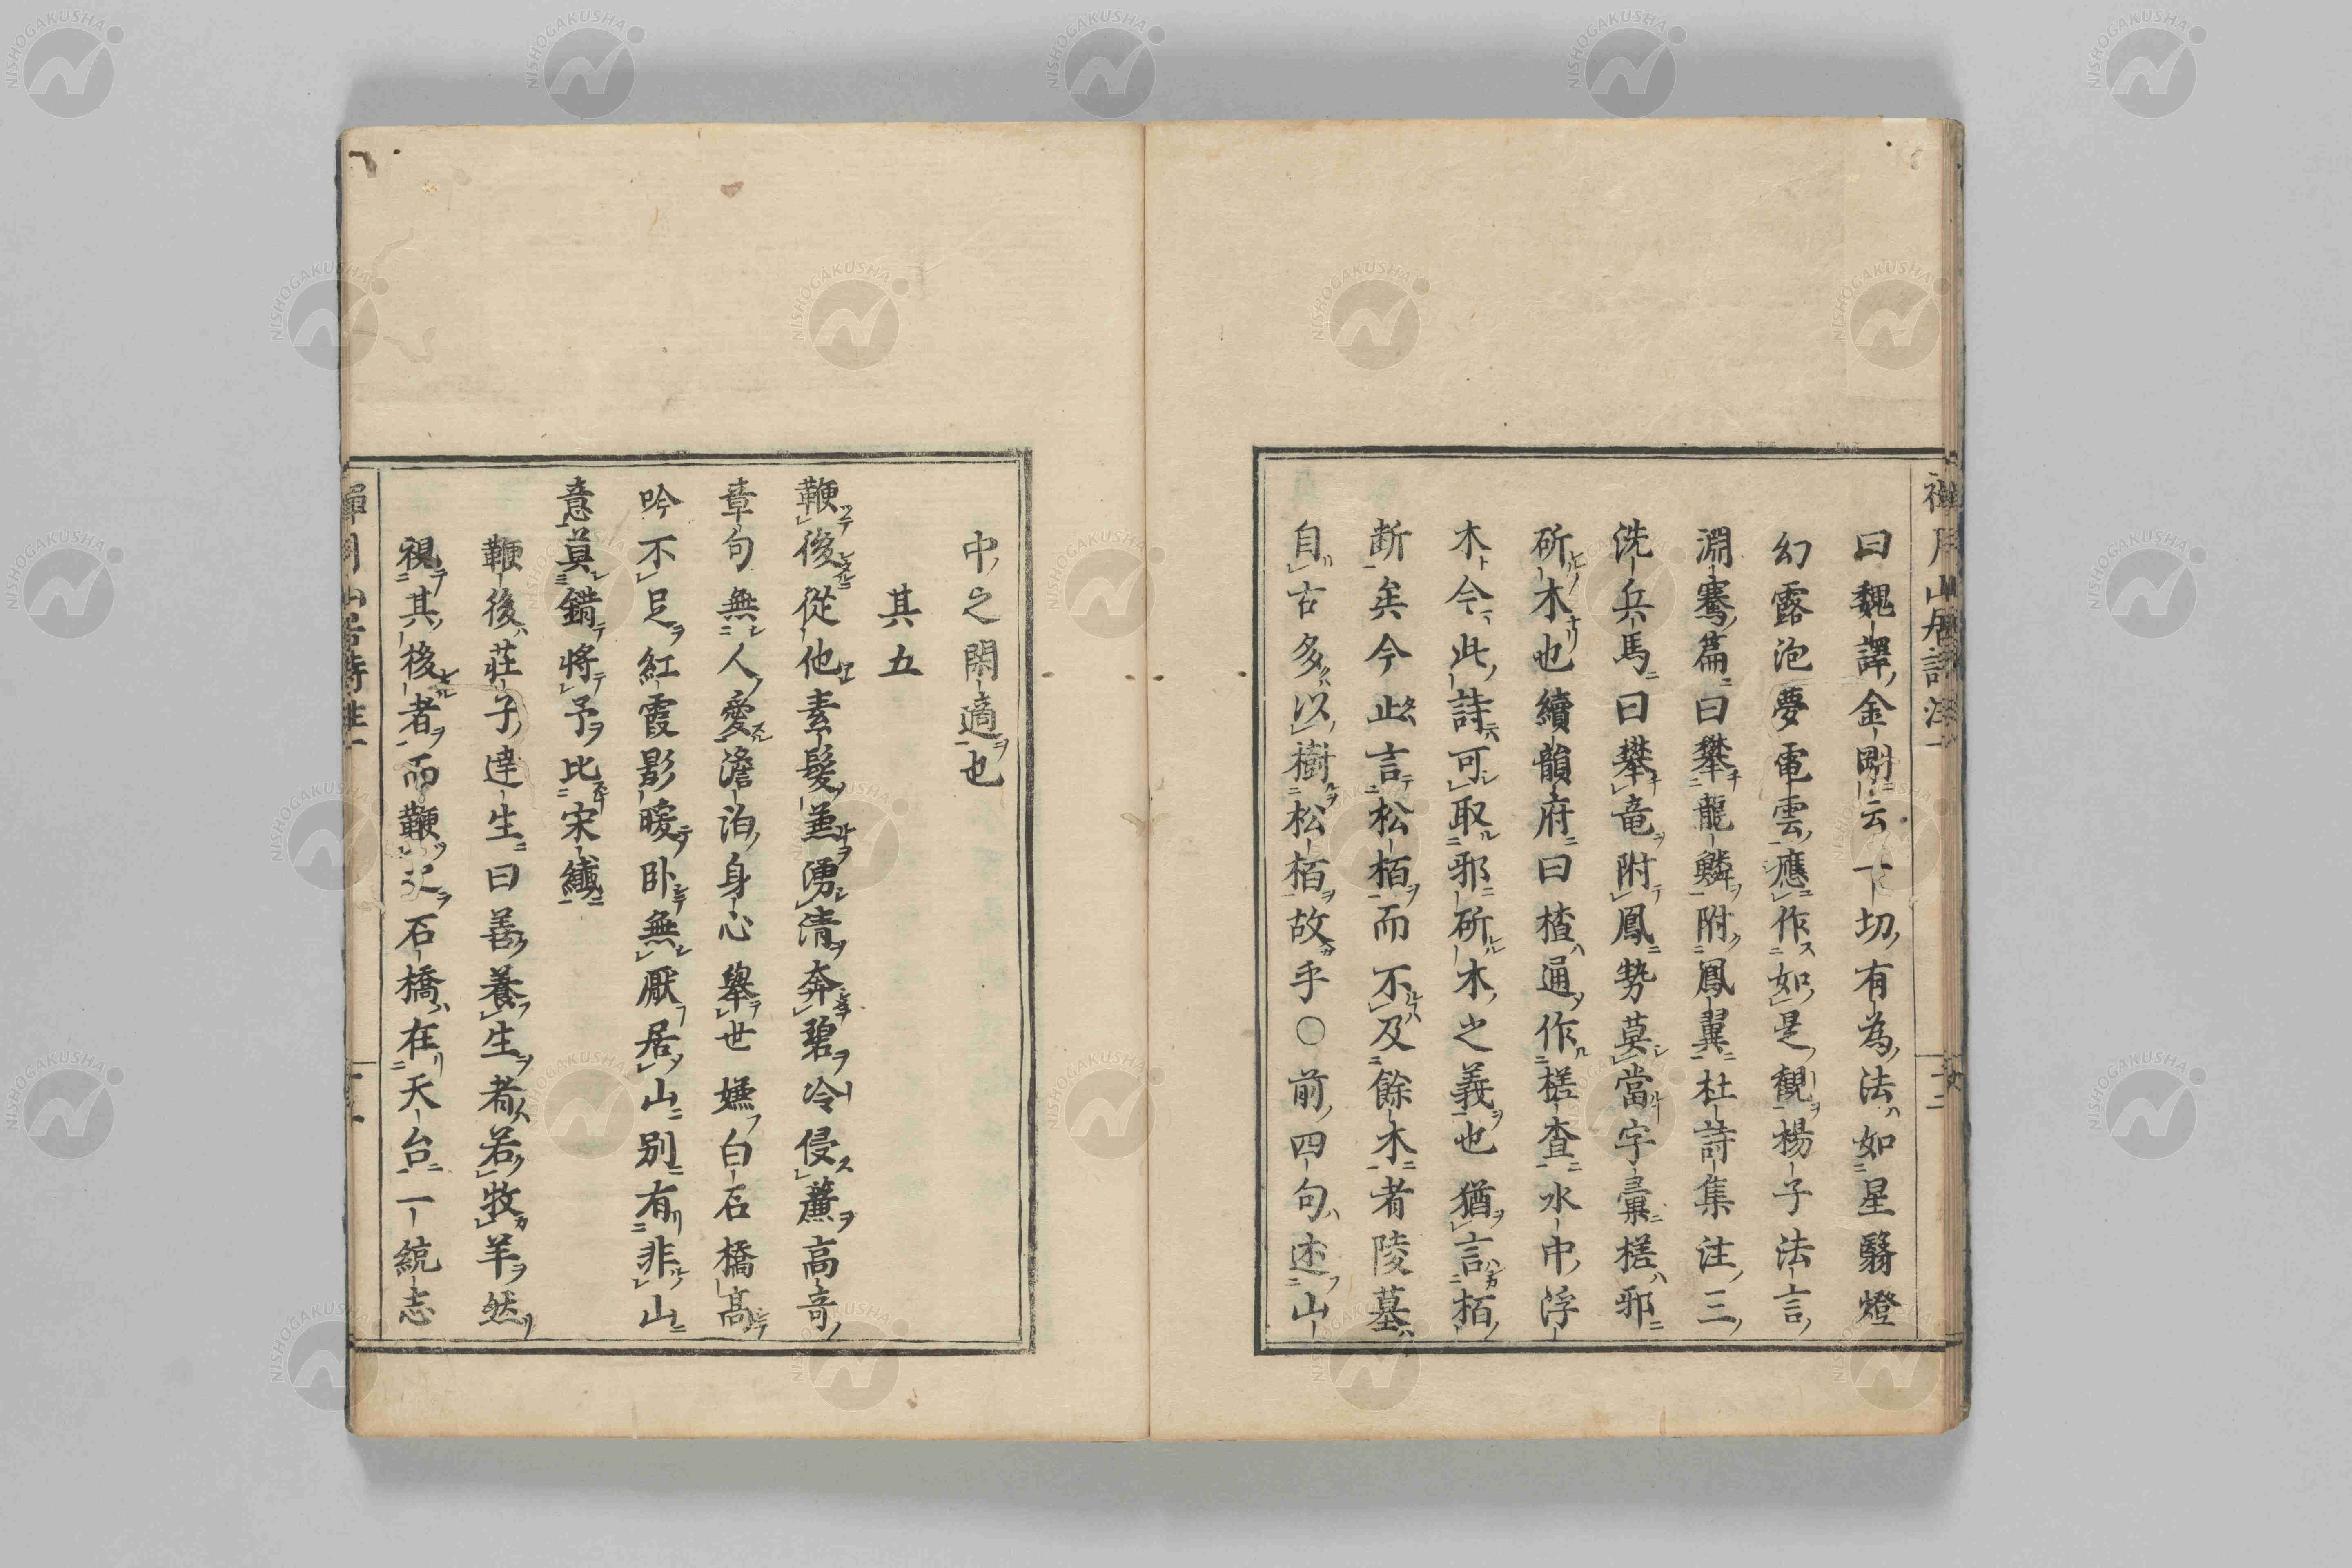 曰魏譯金剛云一切有為法如星翳燈
幻露泡夢電雲應作如是觀楊子法言
淵騫篇曰攀龍鱗附鳳翼杜詩集注三
洗兵馬曰攀竜附鳳勢莫當字彙槎邪
斫木也續韻府曰楂通作槎査水中浮
木今此詩可取邪斫木之義也猶言栢
断矣今止言松栢而不及餘木者陵墓
自古多以樹松栢故乎○前四句述山
中之閑適也
其五
鞭後從他素髮兼湧清奔碧冷侵簾高哥
章句無人愛澹泊身心舉世嫌白石橋高
吟不足紅霞影暖卧無厭居山別有非山
意莫錯將予比宋纖
鞭後荘子達生曰善養生者若牧羊然
視其後者而鞭之石橋在天台一統志